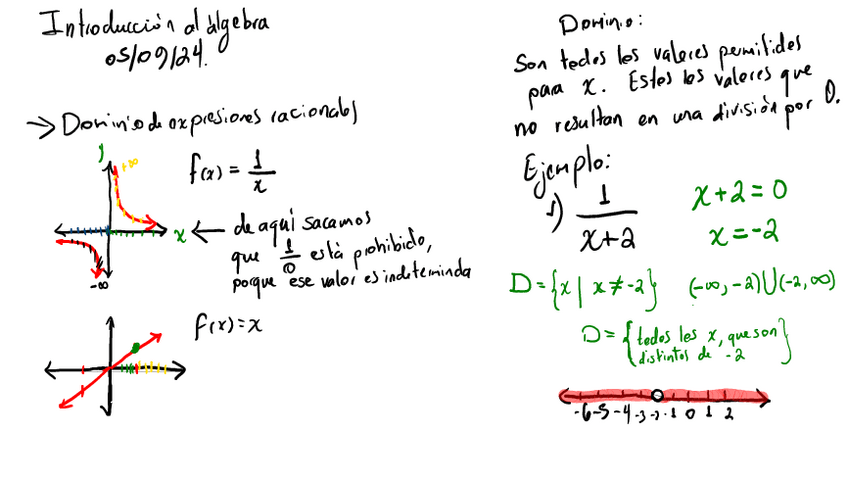 Introducción al álgebra
05/09/24.
→ Dominio de expresiones racionales
y
+∞
f(x) = 1/x
x ← de aquí sacamos
que 1/0 está prohibido,
porque ese valor es indeterminda
-∞
f(x)=x
Dominio:
Son todos los valores permitidos
para x. Estos los valores que
no resultan en una división por 0.
Ejemplo:
1) 1/(x+2)
x+2=0
x=-2
D={x | x≠-2} (-∞,-2)∪(-2,∞)
D={todos los x, que son
distintos de -2}
-6 -5 -4 -3 -2 -1 0 1 2